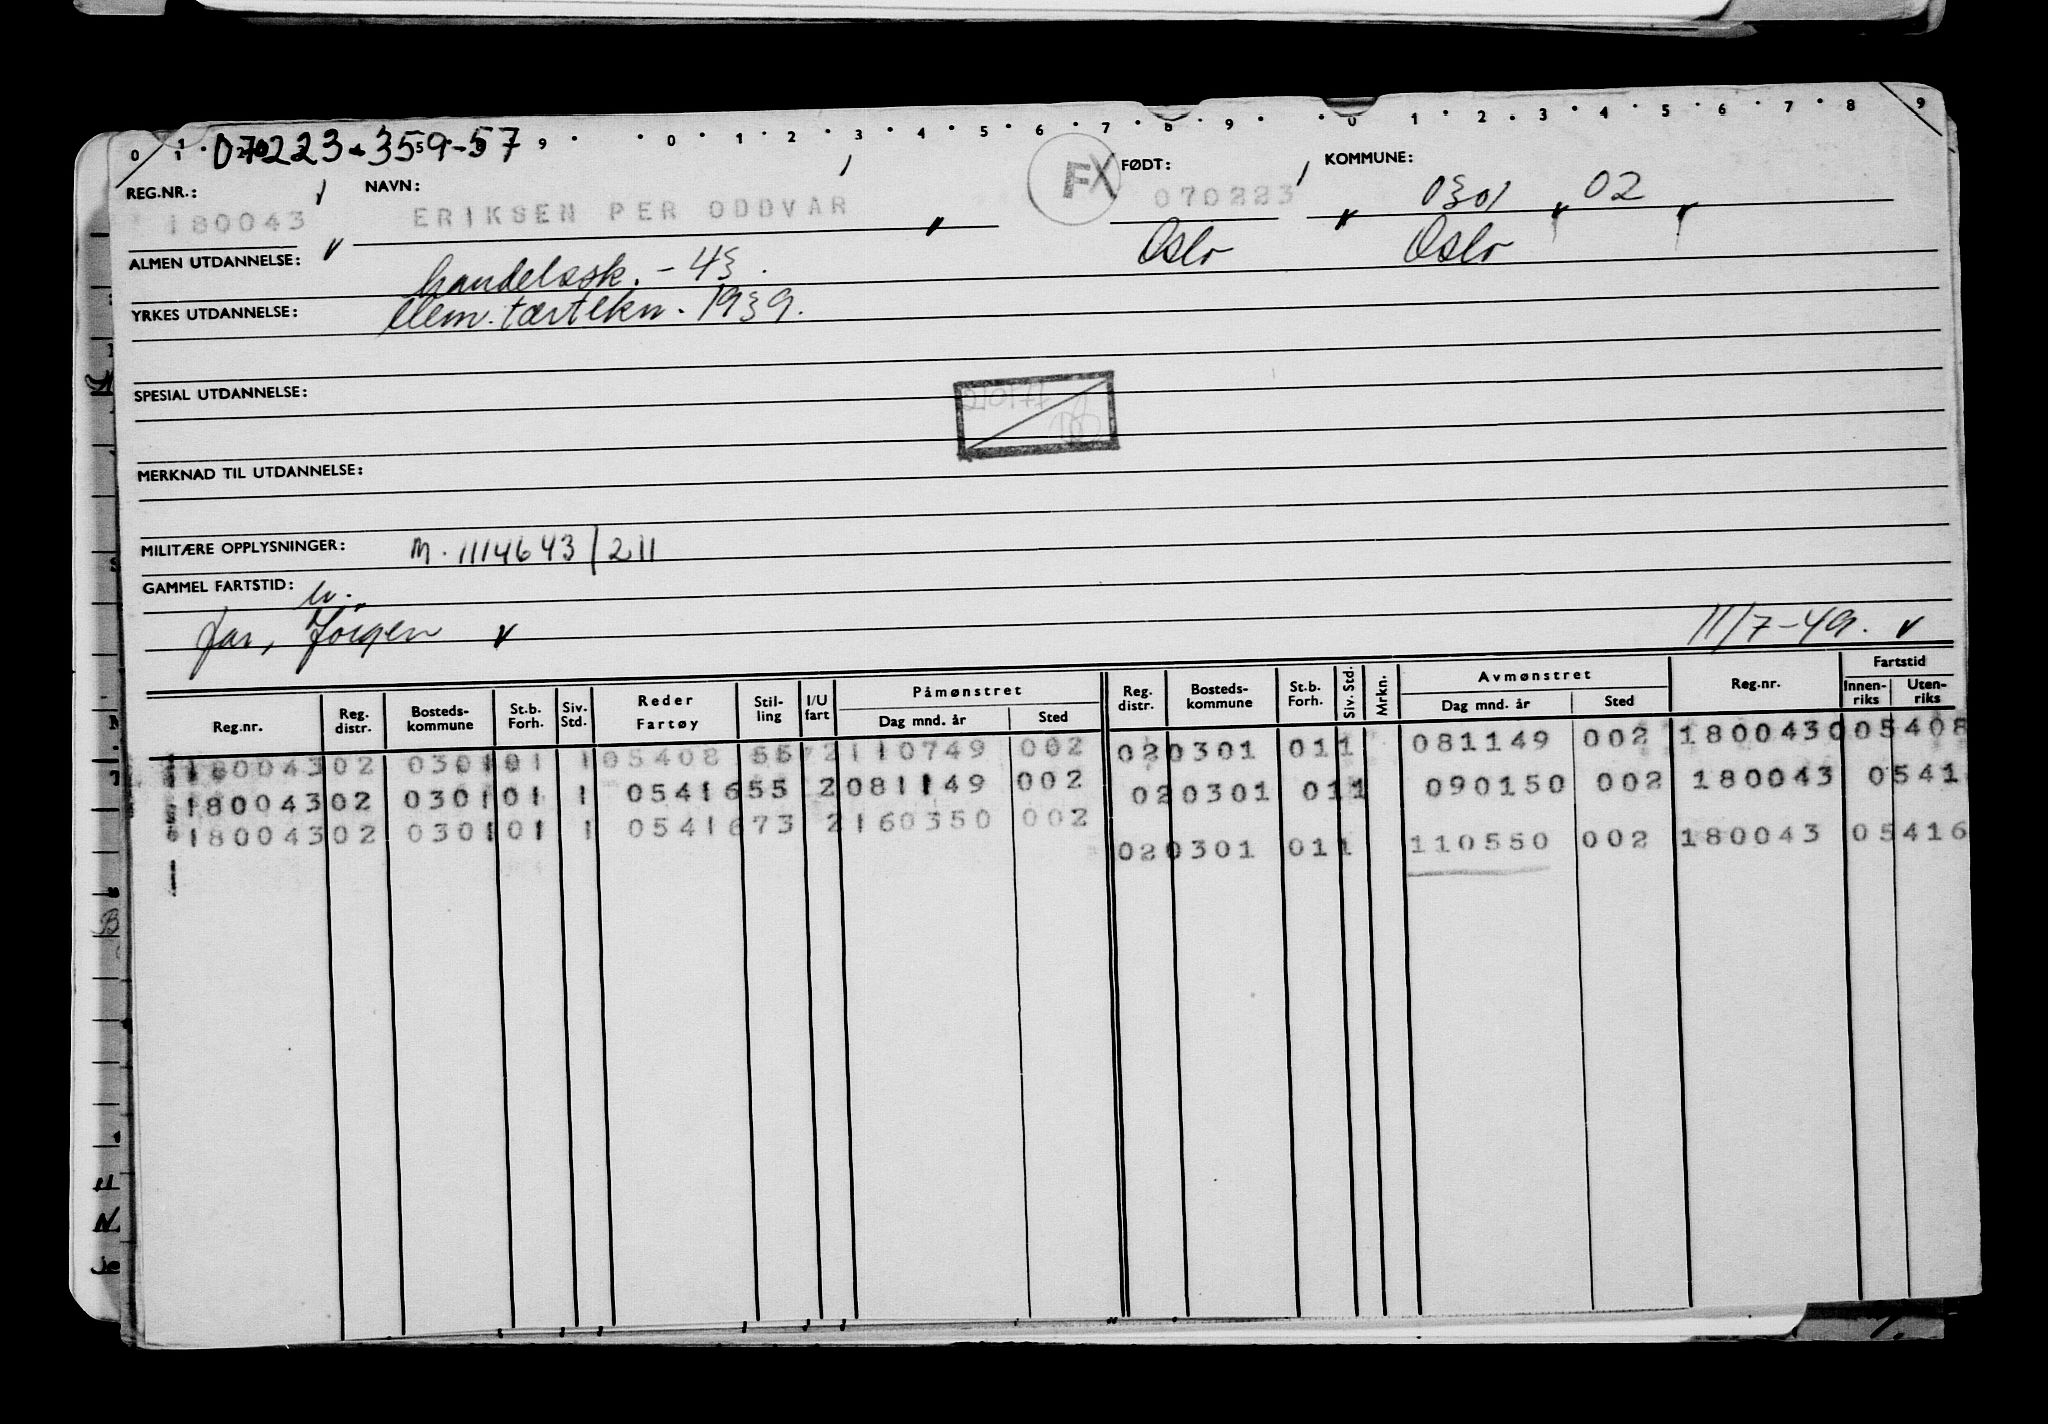 070223-359-57
0 1 9 0 1 2 3 4 5 6 7 8 9 0 1 2 3 4 5 6 7 8 9
REG.NR.: NAVN: FX FØDT: KOMMUNE:
180043 ERIKSEN PER ODDVAR 070223 0301 02
Oslo Oslo
ALMEN UTDANNELSE: handelssk. - 43.
YRKES UTDANNELSE: elem. tært ekn. 1939.
SPESIAL UTDANNELSE:
MERKNAD TIL UTDANNELSE:
MILITÆRE OPPLYSNINGER: M. 1114643/211
GAMMEL FARTSTID:
far, Jörgen 11/7-49.
Reg.nr. Reg. distr. Bosteds-kommune St.b. Forh. Siv. Std. Reder Fartøy Stil-ling I/U fart Påmønstret Dag mnd. år Sted Reg. distr. Bosteds-kommune St.b. Forh. Siv. Std. Mrkn. Avmønstret Dag mnd. år Sted Reg.nr. Fartstid Innen-riks Uten-riks
180043 02 0301 01 1 05408 557 2 110749 002 02 0301 01 1 081149 002 180043 0 05408
180043 02 0301 01 1 05416 55 2 081149 002 02 0301 01 1 090150 002 180043 0541
180043 02 0301 01 1 05416 73 2 160350 002 02 0301 01 1 110550 002 180043 05416